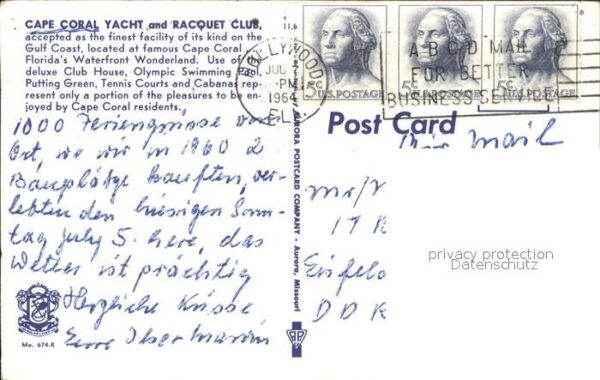 CAPE CORAL YACHT and RACQUET CLUB,
accepted as the finest facility of its kind on the
Gulf Coast, located at famous Cape Coral
Florida's Waterfront Wonderland. Use of
deluxe Club House, Olympic Swimming Pool,
Putting Green, Tennis Courts and Cabanas rep-
resent only a portion of the pleasures to be en-
joyed by Cape Coral residents.
1000 Feriengrüsse vom
Ort, wo wir in 1960 2
Bauplätze kauften, ver-
lebten den hiesigen Sonn-
tag July 5. here, das
Wetter ist prächtig
Herzliche Küsse
Eure
Mo. 674-R
AURORA POSTCARD COMPANY - Aurora, Missouri
HOLLYWOOD
PM
1964
FLA
A B C D MAIL
FOR BETTER
BUSINESS SERVICE
5c U.S. POSTAGE
5c U.S. POSTAGE
5c U.S. POSTAGE
Post Card
Air Mail
17
Eisfeld
DDR
privacy protection
Datenschutz